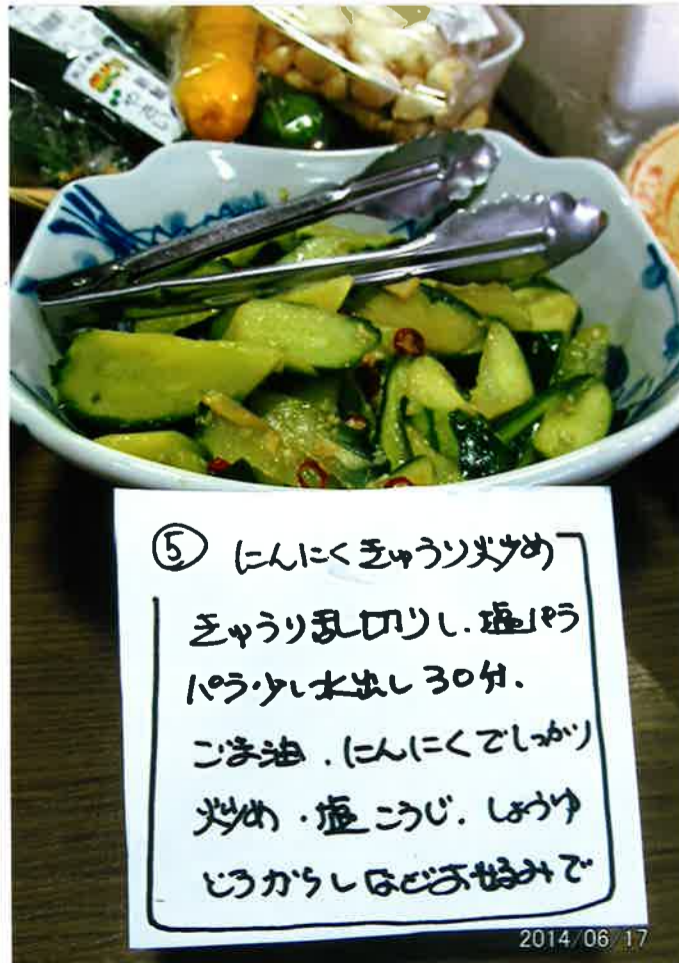 ⑤ にんにくきゅうり炒め
きゅうり乱切りし、塩パラ
パラ・少し水出し30分、
ごま油、にんにくでしっかり
炒め・塩こうじ、しょうゆ
とうがらしなどお好みで
2014/06/17